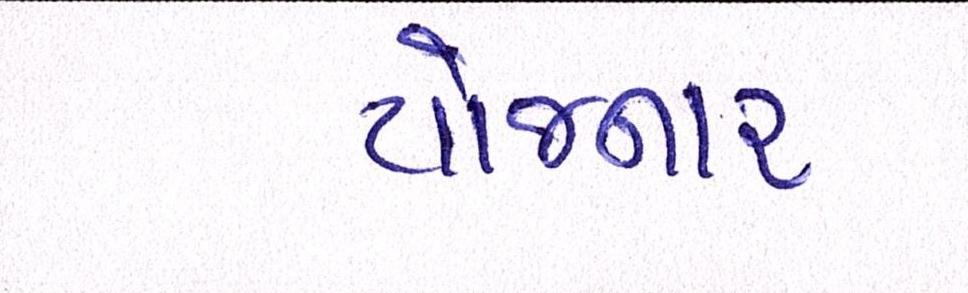 યોજનાર